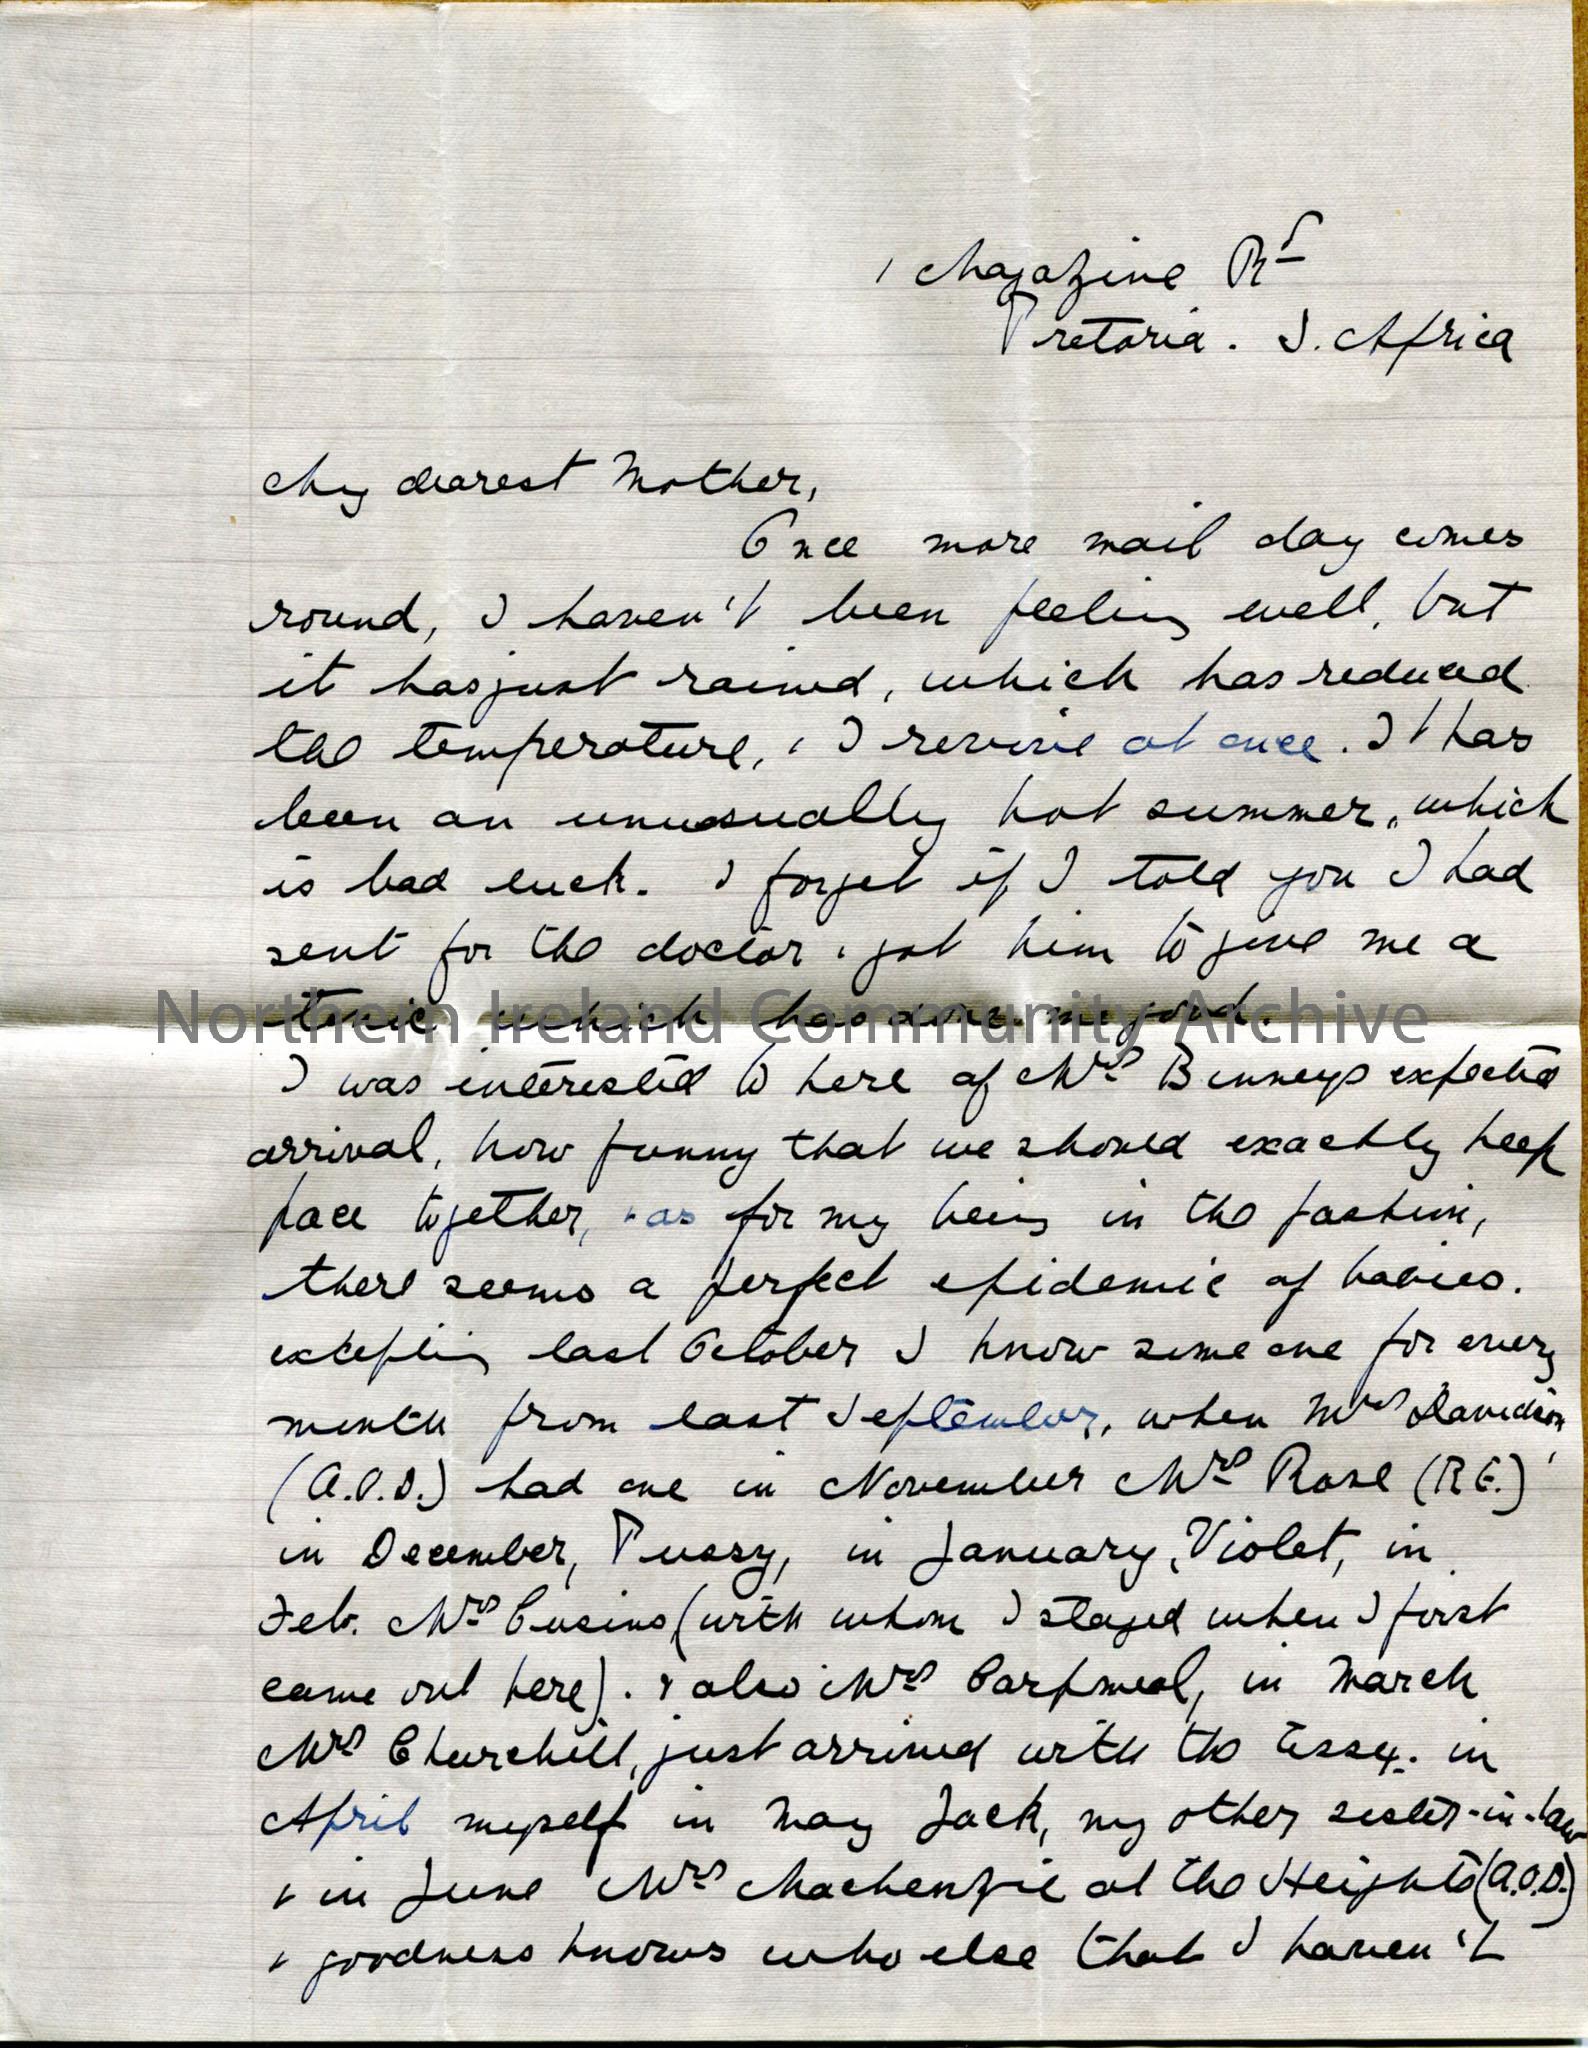 1 Magazine Rd
Pretoria. S. Africa
My dearest Mother,
Once more mail day comes
round, I haven't been feeling well, but
it has just rained, which has reduced
the temperature, & I revive at once. It has
been an unusually hot summer, which
is bad luck. I forget if I told you I had
sent for the doctor & got him to give me a
tonic which has done me good.
Northern Ireland Community Archive
I was interested to here of Mrs Binneys expected
arrival, how funny that we should exactly keep
pace together, & as for my being in the fashion,
there seems a perfect epidemic of babies.
excepting last October I know some one for every
month from last September, when Mrs Davidson
(A.O.D.) had one in November Mrs Rose (R.E.)
in December, Pussy, in January, Violet, in
Feb. Mrs Cusins (with whom I stayed when I first
came out here). & also Mrs Carpmeal, in March
Mrs Churchill, just arrived with the Essex. in
April myself in May Jack, my other sister-in-law
& in June Mrs Mackenzie at the Heights (A.O.D.)
& goodness knows who else that I haven't